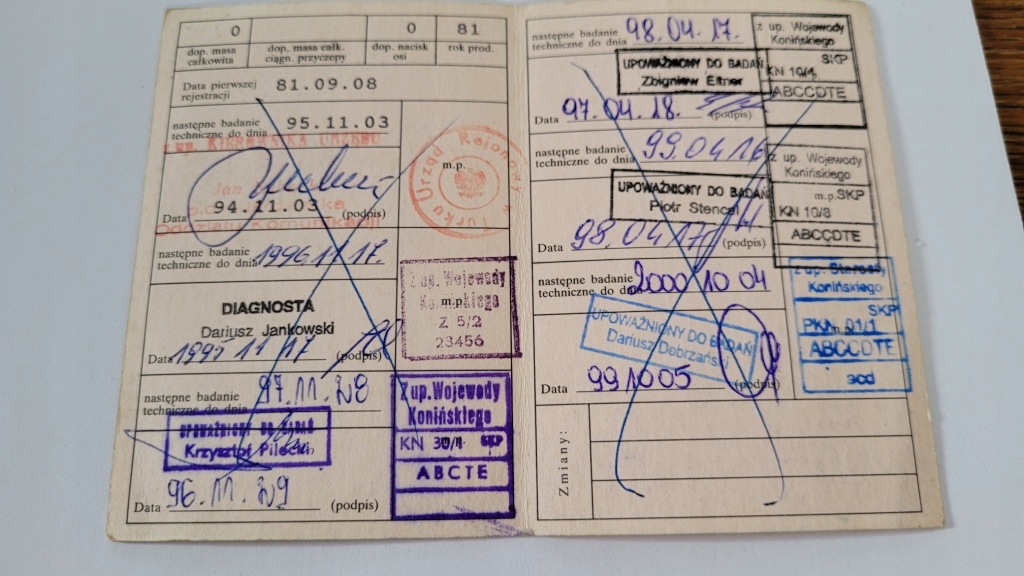 0 0 81
dop. masa całkowita dop. masa całk. ciągn. przyczepy dop. nacisk osi rok prod.
Data pierwszej rejestracji 81.09.08
następne badanie techniczne do dnia 95.11.03
KIEROWNIKA URZĘDU
Jan
Oddziału Komunikacji
Data 94.11.03 (podpis)
m.p.
Urząd Rejonowy w Turku
następne badanie techniczne do dnia 1996.11.17.
DIAGNOSTA
Dariusz Jankowski
Data 1995 11 17 (podpis)
z up. Wojewody
Konińskiego
m.p.
Z 5/2
23456
następne badanie techniczne do dnia 97.11.28
UPOWAŻNIONY DO BADAŃ
Krzysztof Pilecki
Data 96.11.29 (podpis)
Z up. Wojewody
Konińskiego
KN 30/1 SKP
ABCTE
następne badanie techniczne do dnia 98.04.17.
UPOWAŻNIONY DO BADAŃ
Zbigniew Eitner
Data 97.04.18. (podpis)
z up. Wojewody
Konińskiego
SKP
KN 10/4
ABCCDTE
następne badanie techniczne do dnia 99.04.16
UPOWAŻNIONY DO BADAŃ
Piotr Stencel
Data 98.04.17 (podpis)
z up. Wojewody
Konińskiego
m.p. SKP
KN 10/8
ABCCDTE
następne badanie techniczne do dnia 2000 10 04
UPOWAŻNIONY DO BADAŃ
Dariusz Dobrzański
Data 99 10 05 (podpis)
z up. Starosty
Konińskiego
SKP
PKN 01/1
m.p.
ABCCDTE
Zmiany: